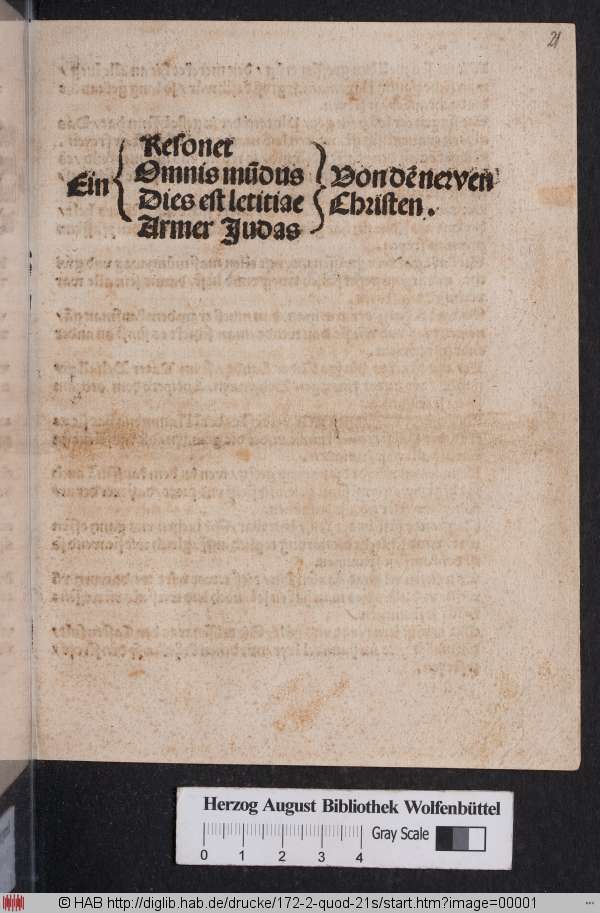 21
Resonet
Omnis mūdus
Ein { Dies est letitiae } Von dē nerven
Armer Judas Christen.
Herzog August Bibliothek Wolfenbüttel
Gray Scale
0 1 2 3 4
© HAB http://diglib.hab.de/drucke/172-2-quod-21s/start.htm?image=00001